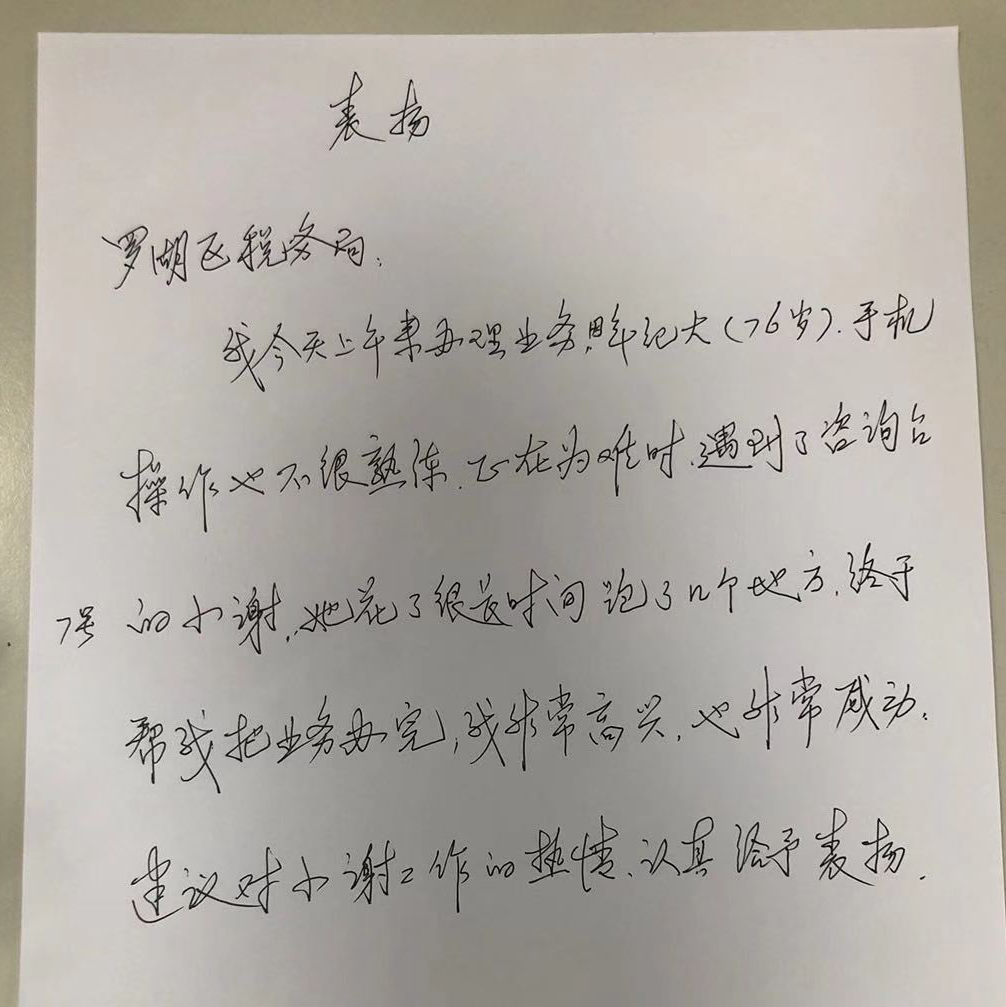 表扬
罗湖区税务局:
我今天上午来办理业务,因年纪大(76岁).手机
操作也不很熟练.正在为难时.遇到了咨询台
7号的小谢,她花了很长时间跑了几个地方.终于
帮我把业务办完,我非常高兴,也非常感动.
建议对小谢工作的热情、认真给予表扬.